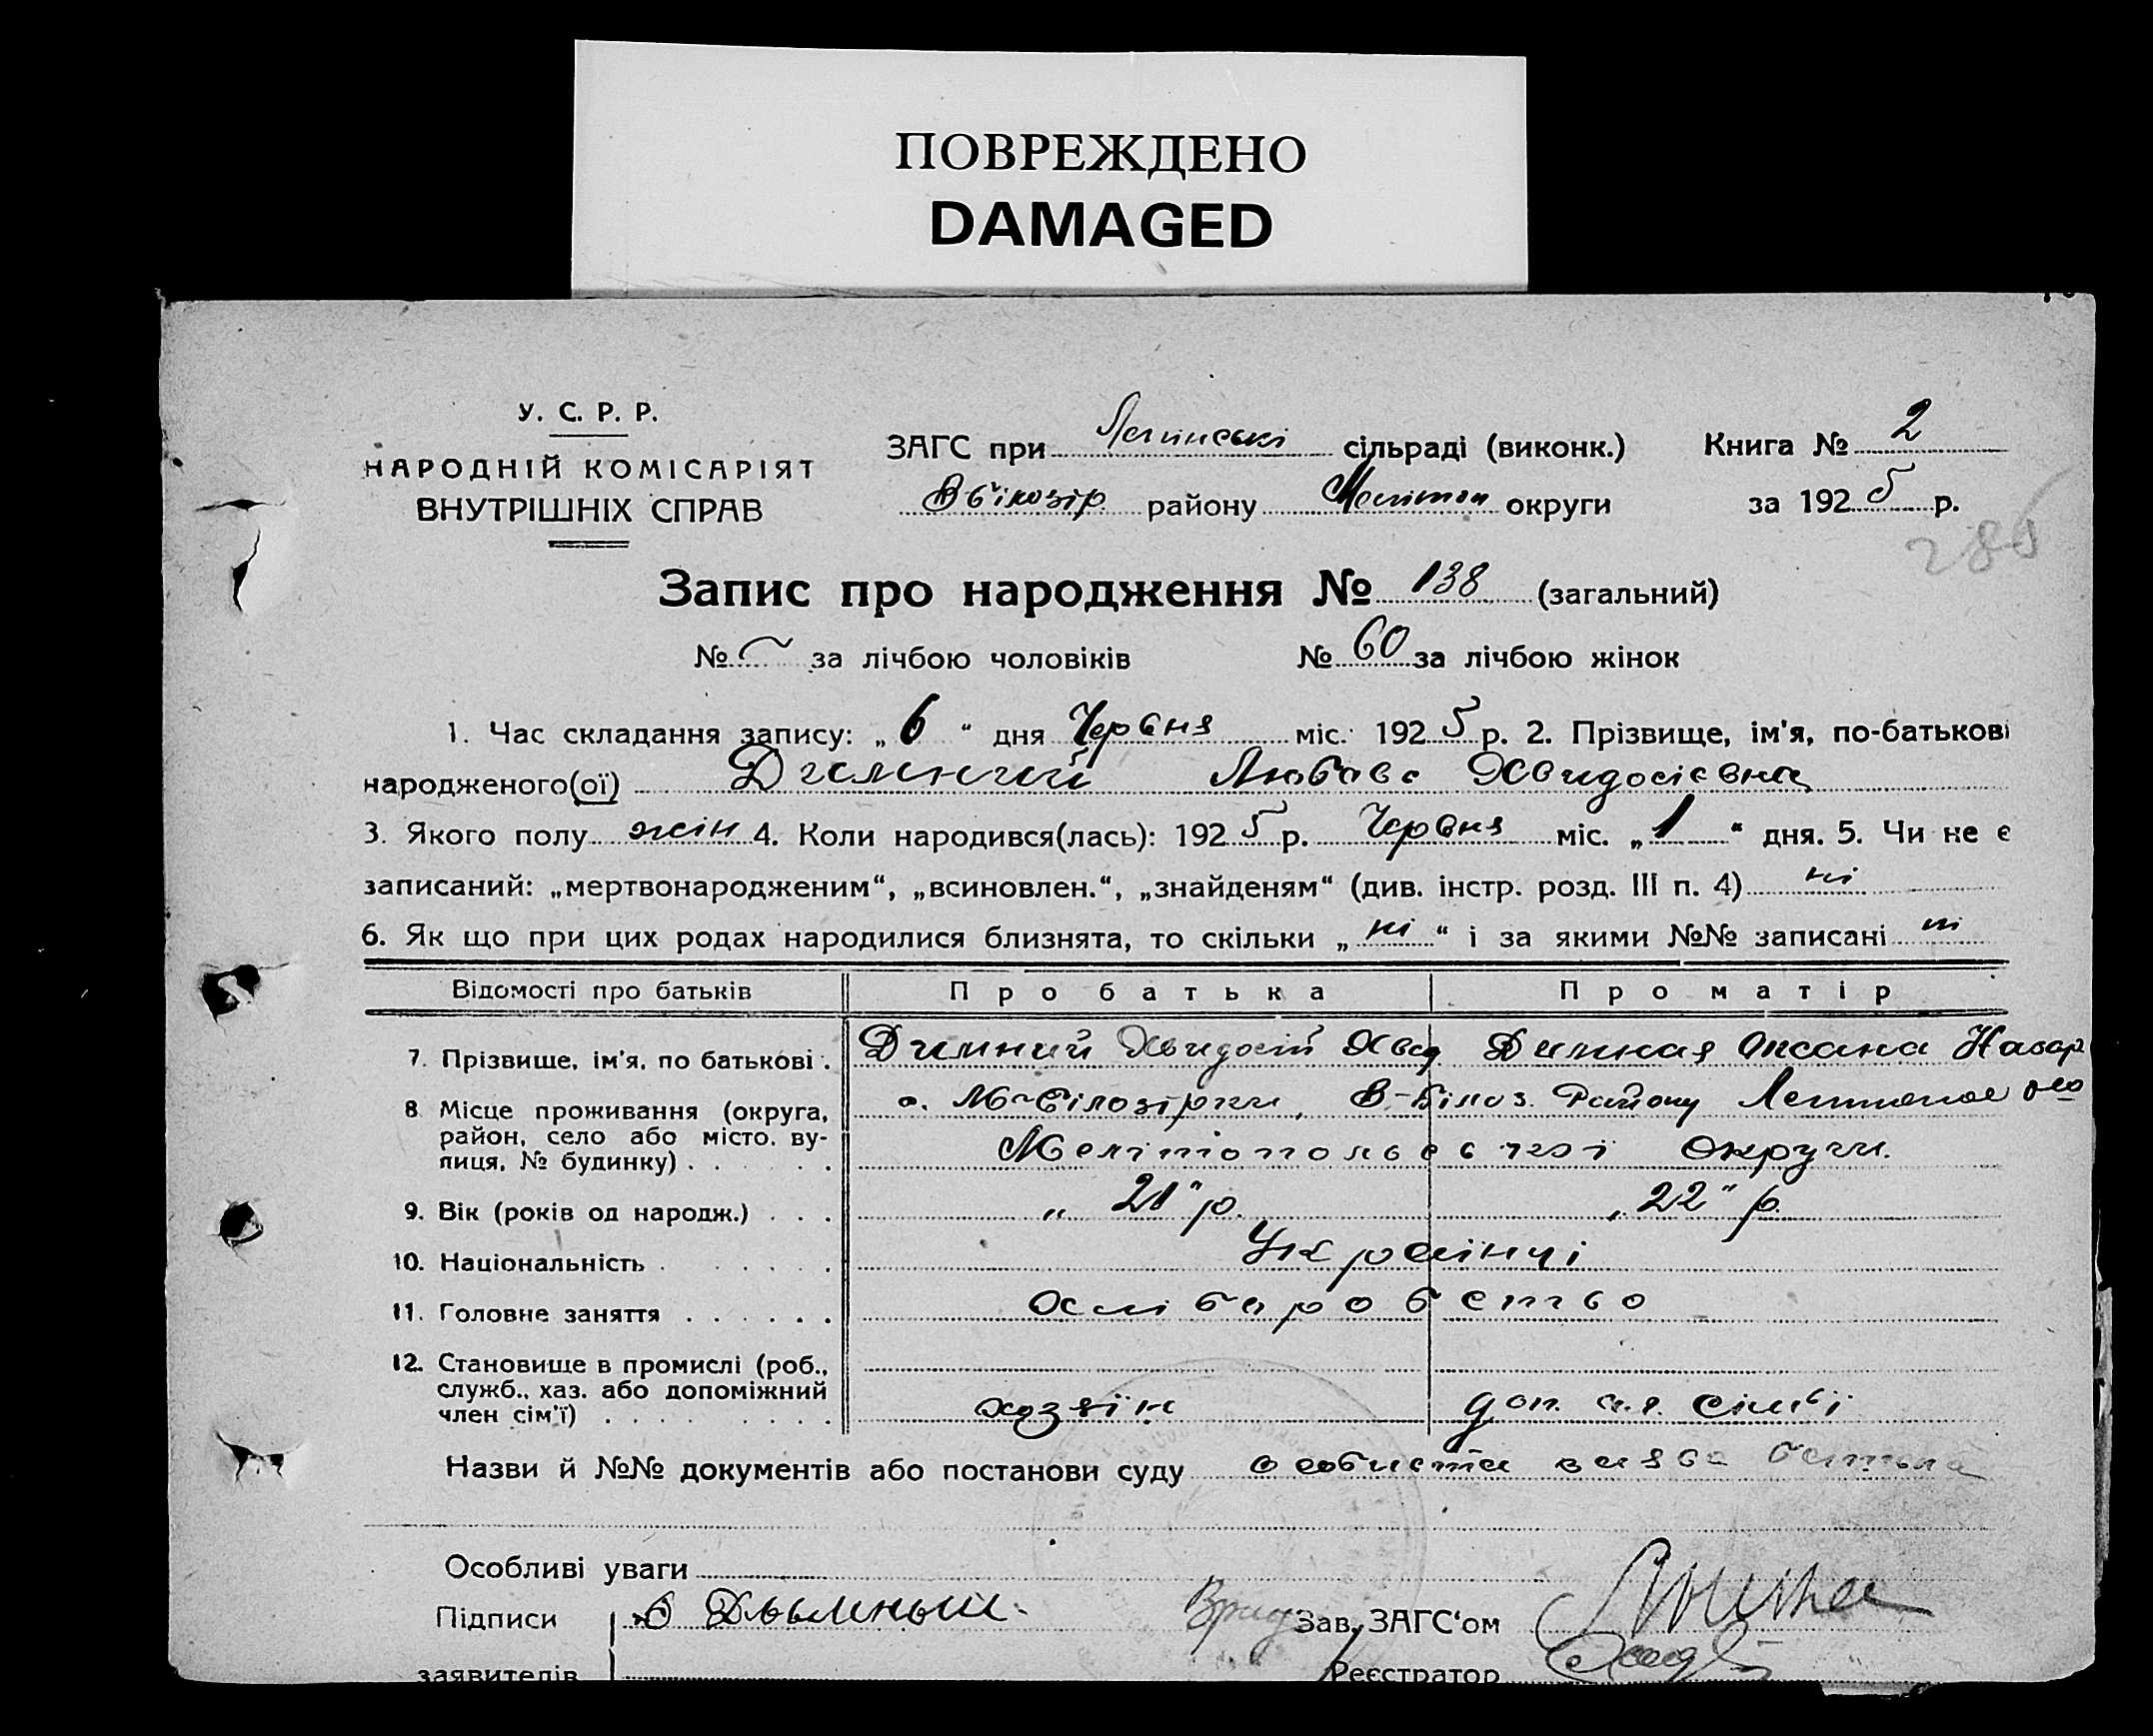 ПОВРЕЖДЕНО
DAMAGED
У. С. Р. Р.
НАРОДНІЙ КОМІСАРІЯТ
ВНУТРІШНІХ СПРАВ
ЗАГС при сільраді (виконк.) Книга № 2
В Білозір району Мелітоп округи за 1925 р.
286
Запис про народження № 138 (загальний)
№ за лічбою чоловіків № 60 за лічбою жінок
1. Час складання запису: „6“ дня Червня міс. 1925 р. 2. Прізвище, ім'я, по-батькові
народженого(ої) Димний Любов Хвидосієвна
3. Якого полу жін 4. Коли народився(лась): 1925 р. Червня міс. „1“ дня. 5. Чи не є
записаний: „мертвонародженим“, „всиновлен.“, „знайденям“ (див. інстр. розд. III п. 4) ні
6. Як що при цих родах народилися близнята, то скільки „ні“ і за якими №№ записані ні
Відомості про батьків Про батька Про матір
7. Прізвище, ім'я, по батькові. Димний Хвидосій Хвед Димная Оксана Назар
8 Місце проживання (округа, район, село або місто, вулиця, № будинку) с. М-Білозірки, В-Білоз. Району
Округи.
9. Вік (років од народж.) . . . „21“ р. „22“ р.
10. Національність . . . . . . Українці
11. Головне заняття . . . . . . хліборобство
12. Становище в промислі (роб.,
служб., хаз. або допоміжний
член сім'ї) . . . . . . . . . хозяїн доп. чл. сімьї
Назви й №№ документів або постанови суду особиста заява батька
Особливі уваги
Підписи Дымный Врид Зав. ЗАГС'ом
заявителів Реєстратор